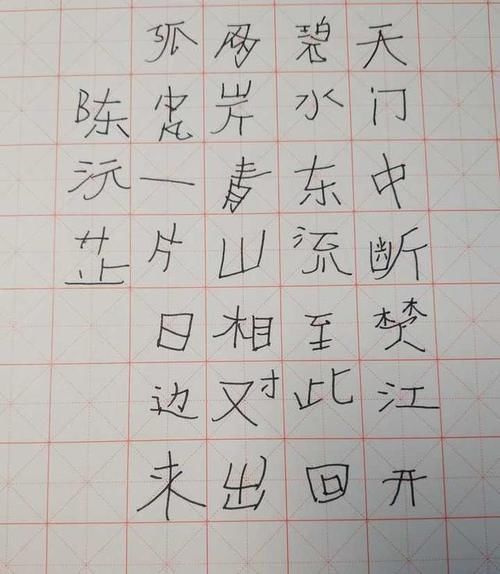 天门中断楚江开
碧水东流至此回
两岸青山相对出
孤一片日边来
陈沅芷